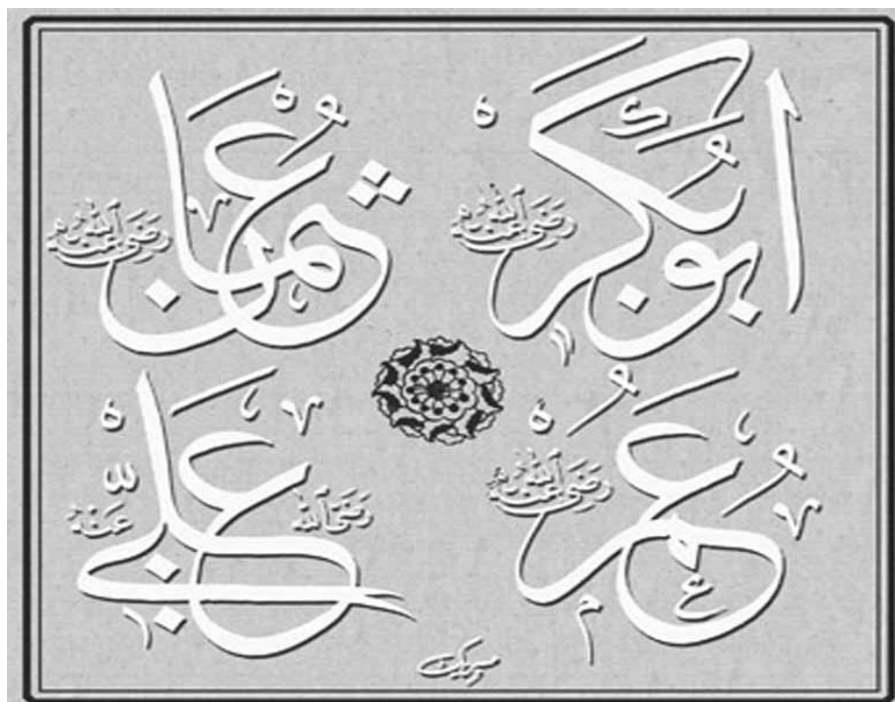 أبو بكر رضي الله عنه
عثمان رضي الله عنه
عمر رضي الله عنه
علي رضي الله عنه